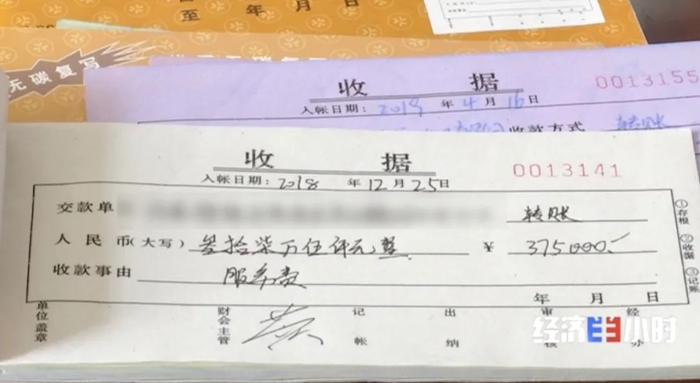 至 年 月 日
无碳复写
收 据 0013155
入帐日期: 2018 年 4 月 16 日
收款方式 转账
收 据 0013141
入帐日期: 2018 年 12 月 25 日
交款单 转账
人民币(大写) 叁拾柒万伍仟元整 ¥ 375000.-
收款事由 服务费
年 月 日
①存根 ②收据 ③记账
单位盖章 财会主管 黄 记帐 出纳 审核 经办
经济半小时